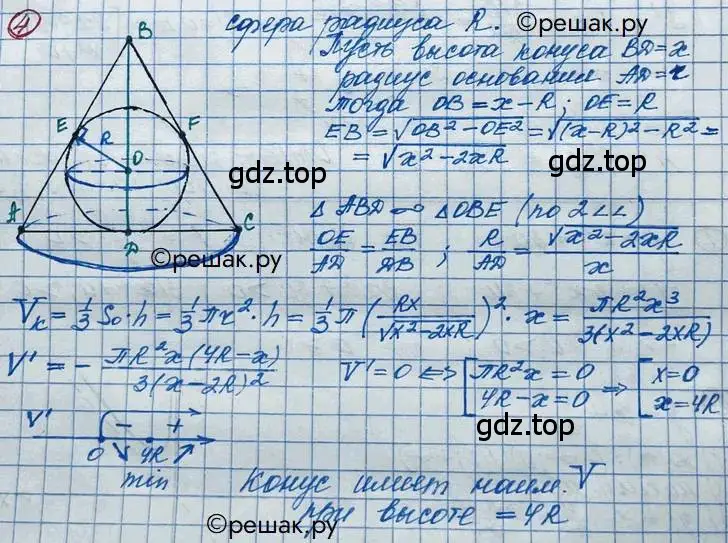 4
сфера радиуса R. ©решак.ру
Пусть высота конуса BD = x
радиус основания AD = r
Тогда OB = x - R; OE = R
EB = √(OB² - OE²) = √((x-R)² - R²) =
= √(x² - 2xR)
gdz.top
gdz.top
B
E
F
R
O
A
D
C
©решак.ру
△ABD ∾ △OBE (по 2∠∠)
OE/AD = EB/DB ; R/AD = √(x² - 2xR)/x
Vк = 1/3 Sо·h = 1/3 πr²·h = 1/3 π (Rx/√(x² - 2xR))² · x = πR²x³/3(x² - 2xR)
V' = - πR²x(4R-x)/3(x-2R)²
V' = 0 <=> [πR²x = 0 4R - x = 0 => [x = 0 x = 4R
gdz.top
V' - +
0 4R
min
Конус имеет наим. V
при высоте = 4R
©решак.ру